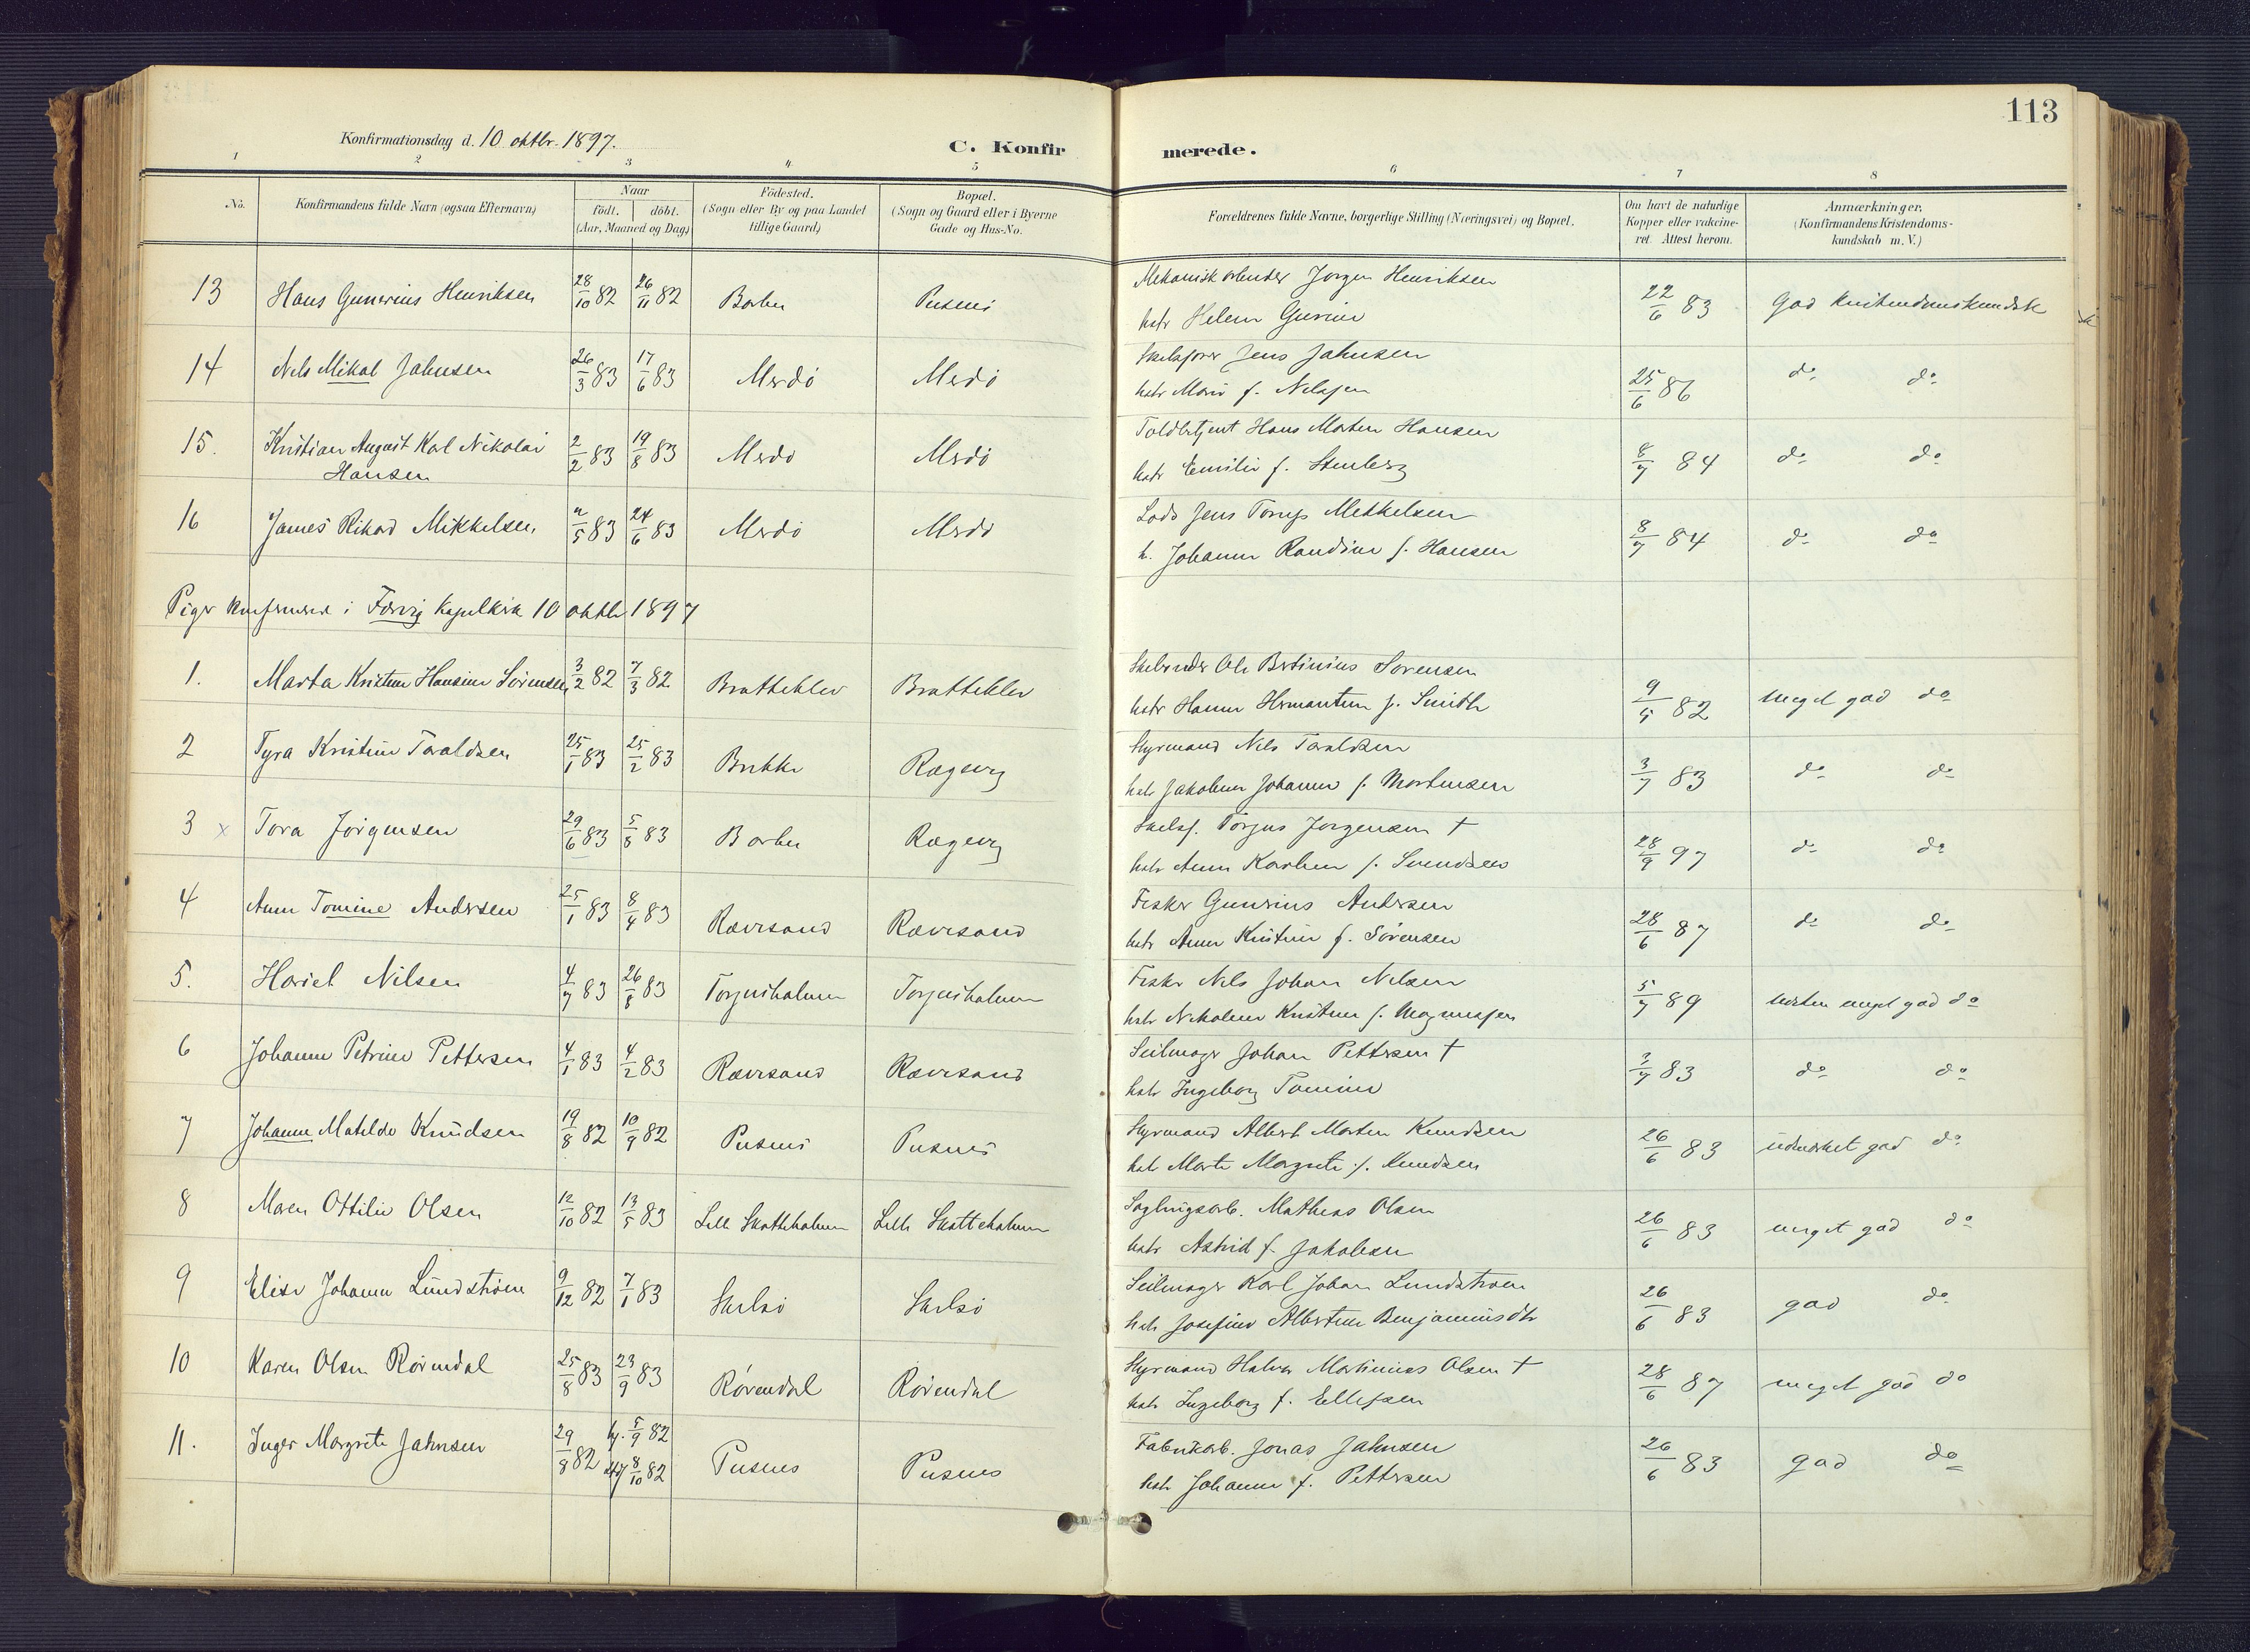 113
Konfirmationsdag d. 10 oktbr. 1897.
C. Konfirmerede.
1 2 3 4 5 6 7 8
No.
Konfirmandens fulde Navn (ogsaa Efternavn)
Naar
födt. döbt.
(Aar, Maaned og Dag)
Födested.
(Sogn eller By og paa Landet
tillige Gaard)
Bopæl.
(Sogn og Gaard eller i Byerne
Gade og Hus-No.
Forældrenes fulde Navne, borgerlige Stilling (Næringsvei) og Bopæl.
Om havt de naturlige
Kopper eller vakcine-
ret. Attest herom.
Anmærkninger,
(Konfirmandens Kristendoms-
kundskab m. V.)
13 Hans Gunerius Henriksen 28/10 82 26/11 82 Barbu Pusnes
Mekanisk arbeider Jørgen Henriksen
hstr Helene Gurine 22/6 83 God kristendomskundsk
14 Nils Mikal Jahnsen 26/3 83 17/6 83 Merdö Merdö
Skibsfører Jens Jahnsen
hstr Marie f. Nilsen 25/6 86 do do
15. Kristian August Karl Nikolai
Hansen 2/2 83 19/8 83 Merdö Merdö
Toldbetjent Hans Morten Hansen
hstr Emilie f. Stenberg 8/7 84 do do
16 James Rikard Mikkelsen 2/5 83 24/6 83 Merdö Merdö
Lods Jens Torup Mikkelsen
h. Johanne Randine f. Hansen 8/7 84 do do
Piger konfirmered i Færvig Kapelkirke 10 oktbr 1897
1. Marta Kristine Hansine Sörensen 3/2 82 7/3 82 Bratteklev Bratteklev
Skibsreder Ole Bertinius Sörensen
hstr Hanne Hermantine f. Smith 9/5 82 meget god do
2 Tyra Kristine Taraldsen 25/1 83 25/2 83 Brekke Rægevig
Styrmand Nils Taraldsen
hstr Jakobine Johanne f. Mortensen 3/7 83 do do
3 x Tora Jörgensen 29/6 83 5/8 83 Barbu Rægevig
Skibsf. Torjus Jørgensen †
hstr Anne Karoline f. Svendsen 28/9 97 do do
4 Anne Tomine Andersen 25/1 83 8/4 83 Rævesand Rævesand
Fisker Gunerius Andersen
hstr Anne Kristine f. Sörensen 28/6 87 do do
5. Hariet Nilsen 4/7 83 26/8 83 Torjusholmen Torjusholmen
Fisker Nils Johan Nilsen
hstr Nikoline Kristine f. Magnusen 5/7 89 næsten meget god do
6 Johanne Petrine Pettersen 4/1 83 4/2 83 Rævesand Rævesand
Seilmager Johan Pettersen †
hstr Ingeborg Tomine 3/7 83 do do
7 Johanne Matilde Knudsen 19/8 82 10/9 82 Pusnes Pusnes
Styrmand Albert Morten Knudsen
hstr Marte Margrete f. Knudsen 26/6 83 udmærket god do
8 Maren Ottilie Olsen 12/10 82 13/5 83 Lille Skotteholmen Lille Skotteholmen
Matheas Olsen
hstr Astrid f. Jakobsen 26/6 83 meget god do
9 Elise Johanne Lundström 9/12 82 7/1 83 Skilsö Skilsö
Seilmager Karl Johan Lundstrøm
hstr Josefine Albertine Benjaminsdtr 26/6 83 god do
10 Karen Olsen Rörendal 25/8 83 23/9 83 Rörendal Rörendal
Styrmand Halvor Martinius Olsen †
hstr Ingeborg f. Ellefsen 28/6 87 meget god do
11. Inger Margrete Jahnsen 29/8 82 hj. 5/9 82 stf 8/10 82 Pusnes Pusnes
Fabrikarb. Jonas Jahnsen
hstr Johanne f. Pettersen 26/6 83 god do